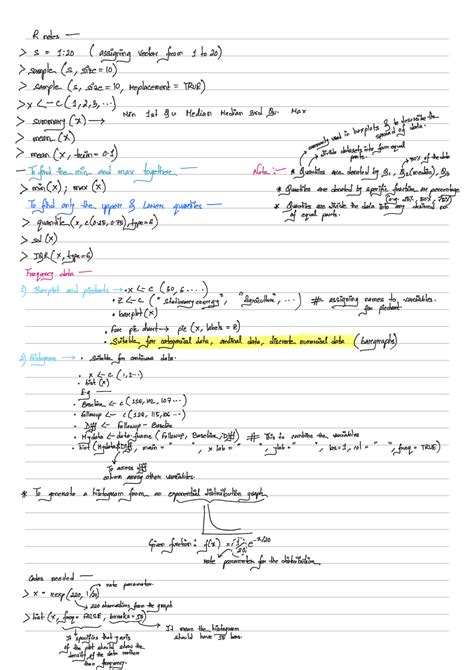 R notes —
> S = 1:20 ( assigning vector from 1 to 20)
> sample (s, size = 10)
> sample (s, size = 10, replacement = TRUE)
> x <- c (1, 2, 3, ...)
> summary (x) → Min 1st Qu Median Median 3rd Qu. Max
> mean (x)
> mean (x, trim = 0.1)
— To find the min and max together —
> min (x) ; max (x)
To find only the upper & lower quartiles —
> quantile (x, c(0.25, 0.75), type=6)
> sd (x)
> IQR (x, type=6)
commonly used in boxplots & to describe the spread of data.
divide datasets into four equal parts.
50% of the data
Note : — * Quartiles are denoted by Q1, Q2(median), Q3
* Quantiles are denoted by specific function or percentage (e.g. 25%, 50%, 75%)
* Quantiles are divide the data into any desired no of equal parts.
Frequency data —
1) Barplot and piecharts → • x <- c (50, 6 ....)
• z <- c ( "Stationary energy", "Agriculture", ...) # assigning names to variables. for piechart.
• barplot (x)
• For pie chart → pie (x, labels = z)
• Suitable for categorical data, ordinal data, discrete numerical data (bargraphs)
2) Histogram → • Suitable for continuous data.
• x <- c (1, 2...)
• hist (x)
E.g —
• Baseline <- c (
• Followup <- c (
• Diff <- Followup - Baseline
• Mydata <- data.frame (Followup, Baseline, Diff) # This to combine the variables
• hist (Mydata$Diff, main = " ", xlab = " ", ylab = " ", las=1, col = " ", freq = TRUE)
To access Diff column among other variables.
* To generate a histogram from an exponential distribution graph
Given function : f(x) = (1/20) e^-x/20
rate parameter for the distribution
Codes needed —
rate parameter
> x = rexp(220, 1/20)
220 observations from the graph
> hist (x, freq = FALSE, breaks =
It specifies that y axis of the plot should show the density of the data rather than frequency.
It means the histogram should have bars.